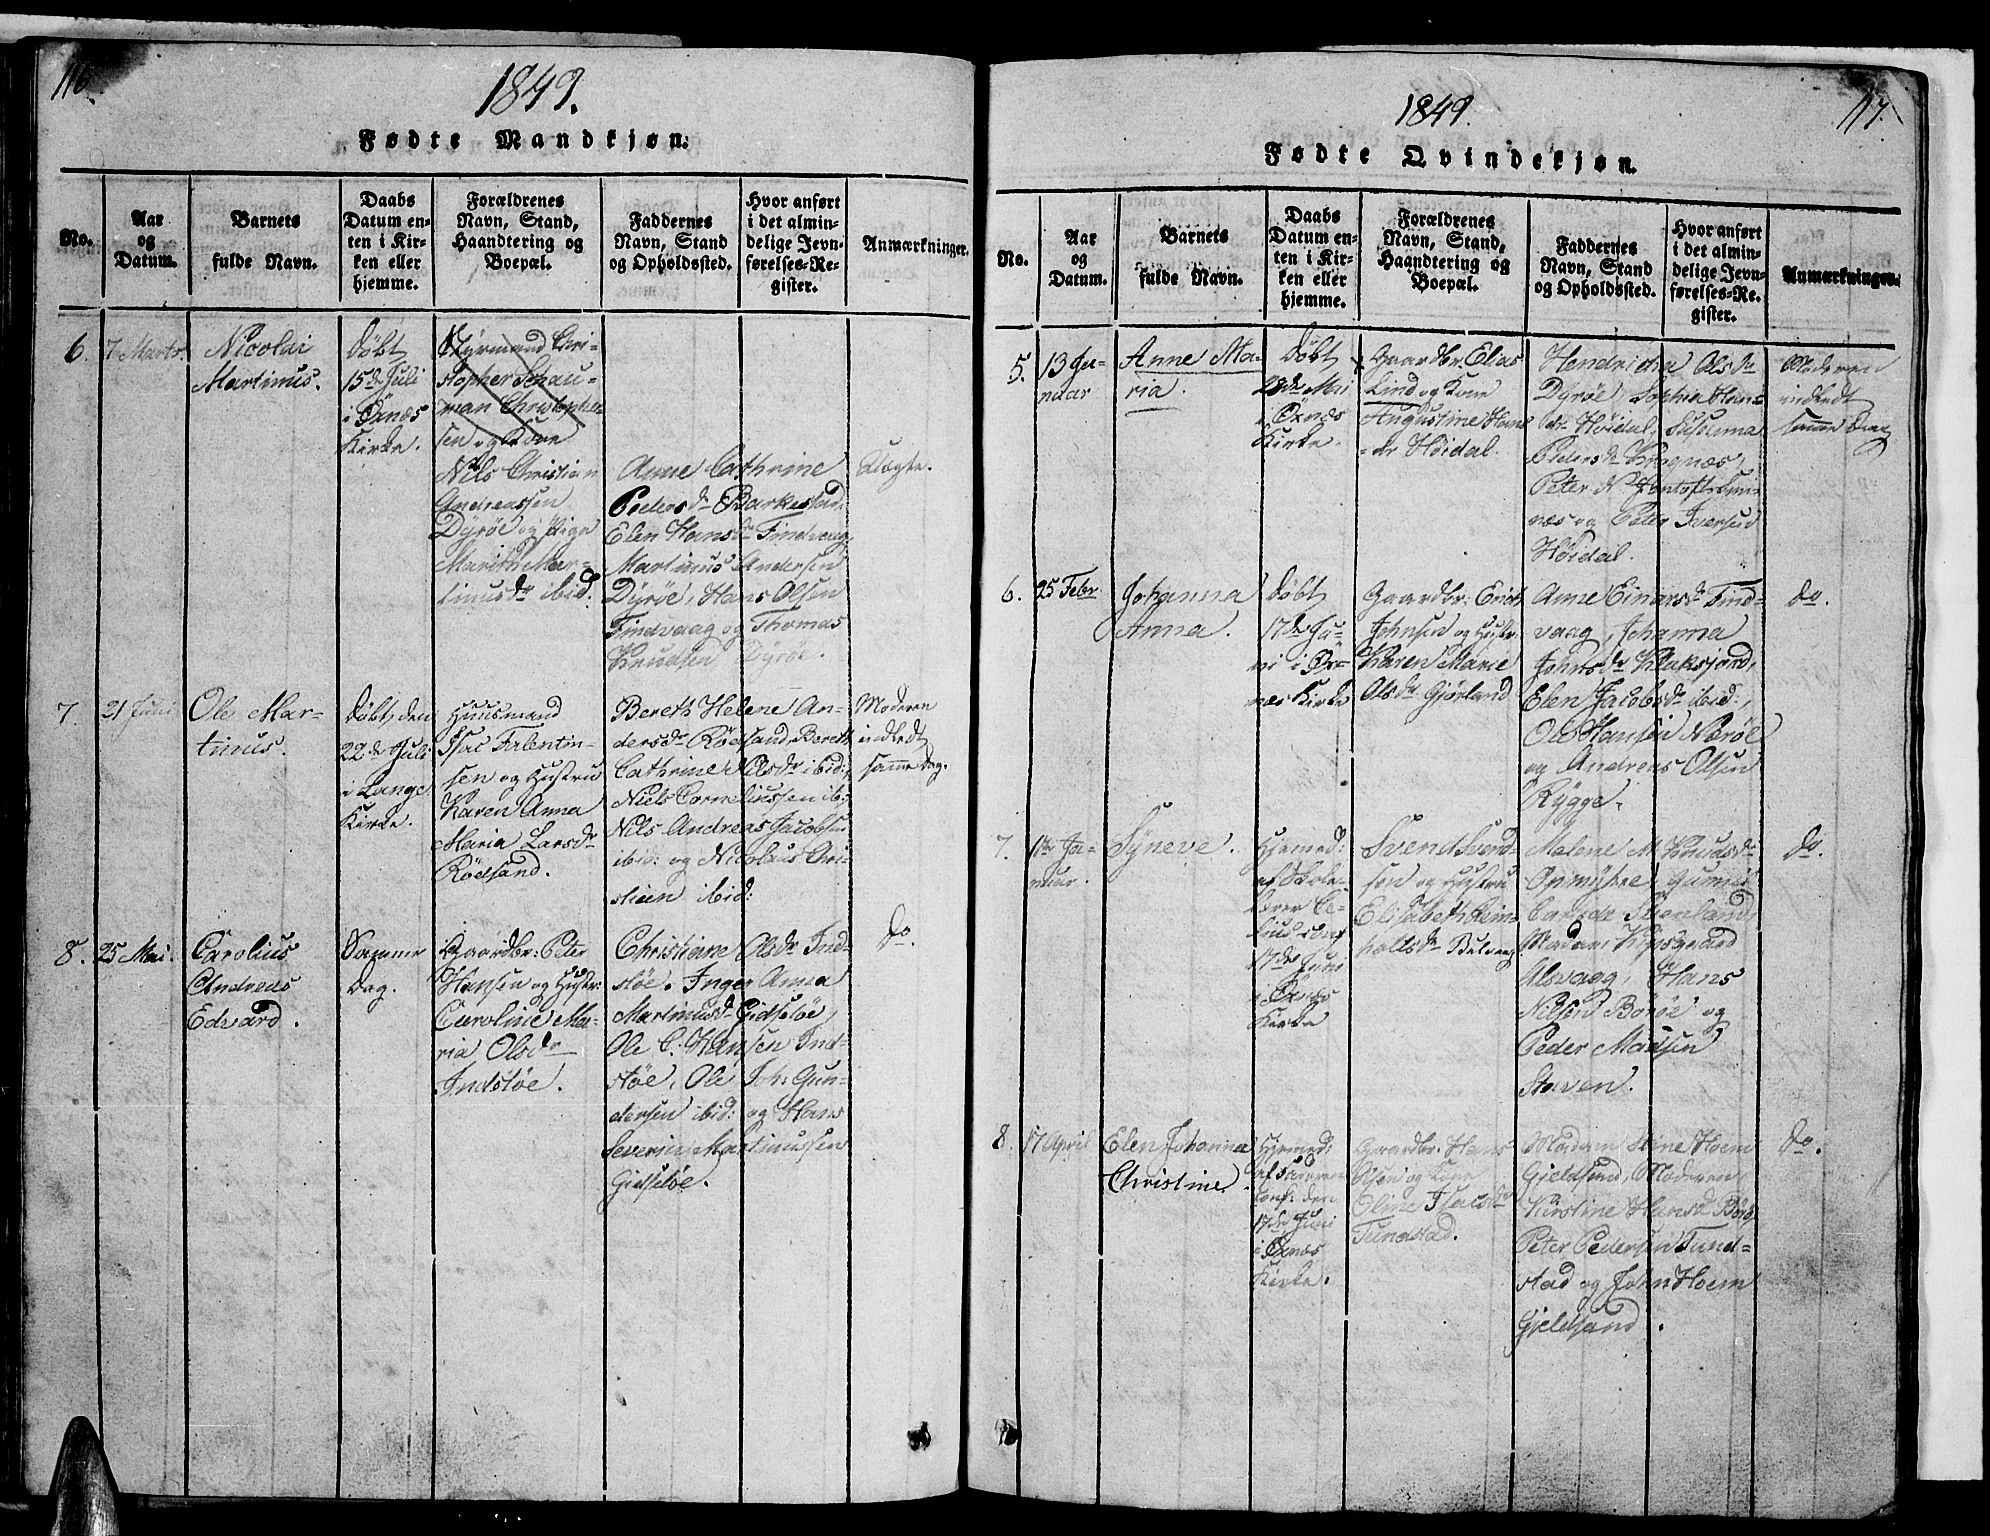 116.
1849.
Fødte Mandkjøn:
No.
Aar
og
Datum.
Barnets
fulde Navn.
Daabs
Datum en-
ten i Kir-
ken eller
hjemme.
Forældrenes
Navn, Stand,
Haandtering og
Boepæl.
Faddernes
Navn, Stand
og Opholdssted.
Hvor anført
i det almin-
delige Jevn-
førelses-Re-
gister.
Anmærkninger.
6.
7 Marts.
Nicolai
Martinus.
Døbt
15de Juli
i Øxnæs
Kirke.
Styrmand Chri-
stopher Schau-
man Christopher-
sen og Kone
Nils Christian
Andreassen
Dyrøe og Pige
Marith Mar-
tinusdr ibid:
Anne Cathrine
Pedersdr Barkestad.
Elen Hansdr Tindvaag,
Martinus Andersen
Dyrøe, Hans Olsen
Tindvaag og Thomas
Knudsen Dyrøe.
Uægte.
7.
21 Juni
Ole Mar-
tinus.
Døbt den
22de Juli
i Lange
Kirke.
Huusmand
Isac Falentin-
sen og Hustru
Karen Anna
Maria Larsdr
Rödsand.
Bereth Helene An-
dersdr Rödsand, Bereth
Cathrine Nilsdr ibid:,
Niels Corneliussen ib:
Nils Andreas Jacobsen
ibid: og Nicolaus Chri-
stien ibid:
Moderen
indledt
samme Dag.
8.
25 Mai.
Carolius
Andreas
Edvard.
Samme
Dag.
Gaardbr: Peter
Hansen og Hustr:
Caroline Ma-
ria Olsdr
Indstøe.
Christiane Olsdr Ind-
støe. Inger Anna
Martinusdr Gidsløe,
Ole C. Hansen Ind-
støe, Ole Joh: Gun-
dersen ibid: og Hans
Severin Martinussen
Gidsløe.
do.
117.
1849.
Fødte Qvindekjøn.
No.
Aar
og
Datum.
Barnets
fulde Navn.
Daabs
Datum en-
ten i Kir-
ken eller
hjemme.
Forældrenes
Navn, Stand,
Haandtering og
Boepæl.
Faddernes
Navn, Stand
og Opholdssted.
Hvor anført
i det almin-
delige Jevn-
førelses-Re-
gister.
Anmærkninger.
5.
13 Ja-
nuar
Anne Ma-
ria.
Døbt
28de Mai
i Øxnæs
Kirke.
Gaardbr. Elias
Lind og Kone
Augustine Hans
-dr Høidal.
Hendricha Olsdr
Dyrøe, Sophia Han-
dr. Høidal, Susanna
Pedersdr Kragnæs,
Peter N Jentoft
næs og Peter Iversen
Høidal.
Moderen
indledt
samme Dag
6.
25 Febr
Johanna
Anna.
Døbt
17de Ju-
ni i Øx-
næs Kirke
Gaardbr: Erich
Johnsen og Hustr:
Karen Marie
Olsdr Gjørland
Anne Einarsdr Tind-
vaag, Johanna
Johnsdr Klaksjord,
Elen Jacobsdr ibid:,
Ole Hansen Nærøe
og Andreas Olsen
Rygge.
do.
7.
Ja-
nuar.
Syneve.
Hjemmed:
af Skole-
lærer
17de Juni
i Øxnæs
Kirke
Svend Svend-
søn og Hustru
Elisabeth Rein-
holtsdr
Malene M Knudsdr
Madam
Alsvaag, Hans
Nilsen Børøe og
Peder Madsen
Staven.
do.
8.
17 April
Elen Johanna
Christine.
Hjemmed:
af Faderen
Conf: den
17de Juni
i Øxnæs
Kirke.
Gaardbr. Hans
Olsøn og Kone
Oline Isacsdr
Tundstad.
Madam Stine Hoem
Gjeldsund, Moderen
Kirstine Hansdr
Peter Pedersen Tund-
stad og John Hoem
Gjeldsund.
do.